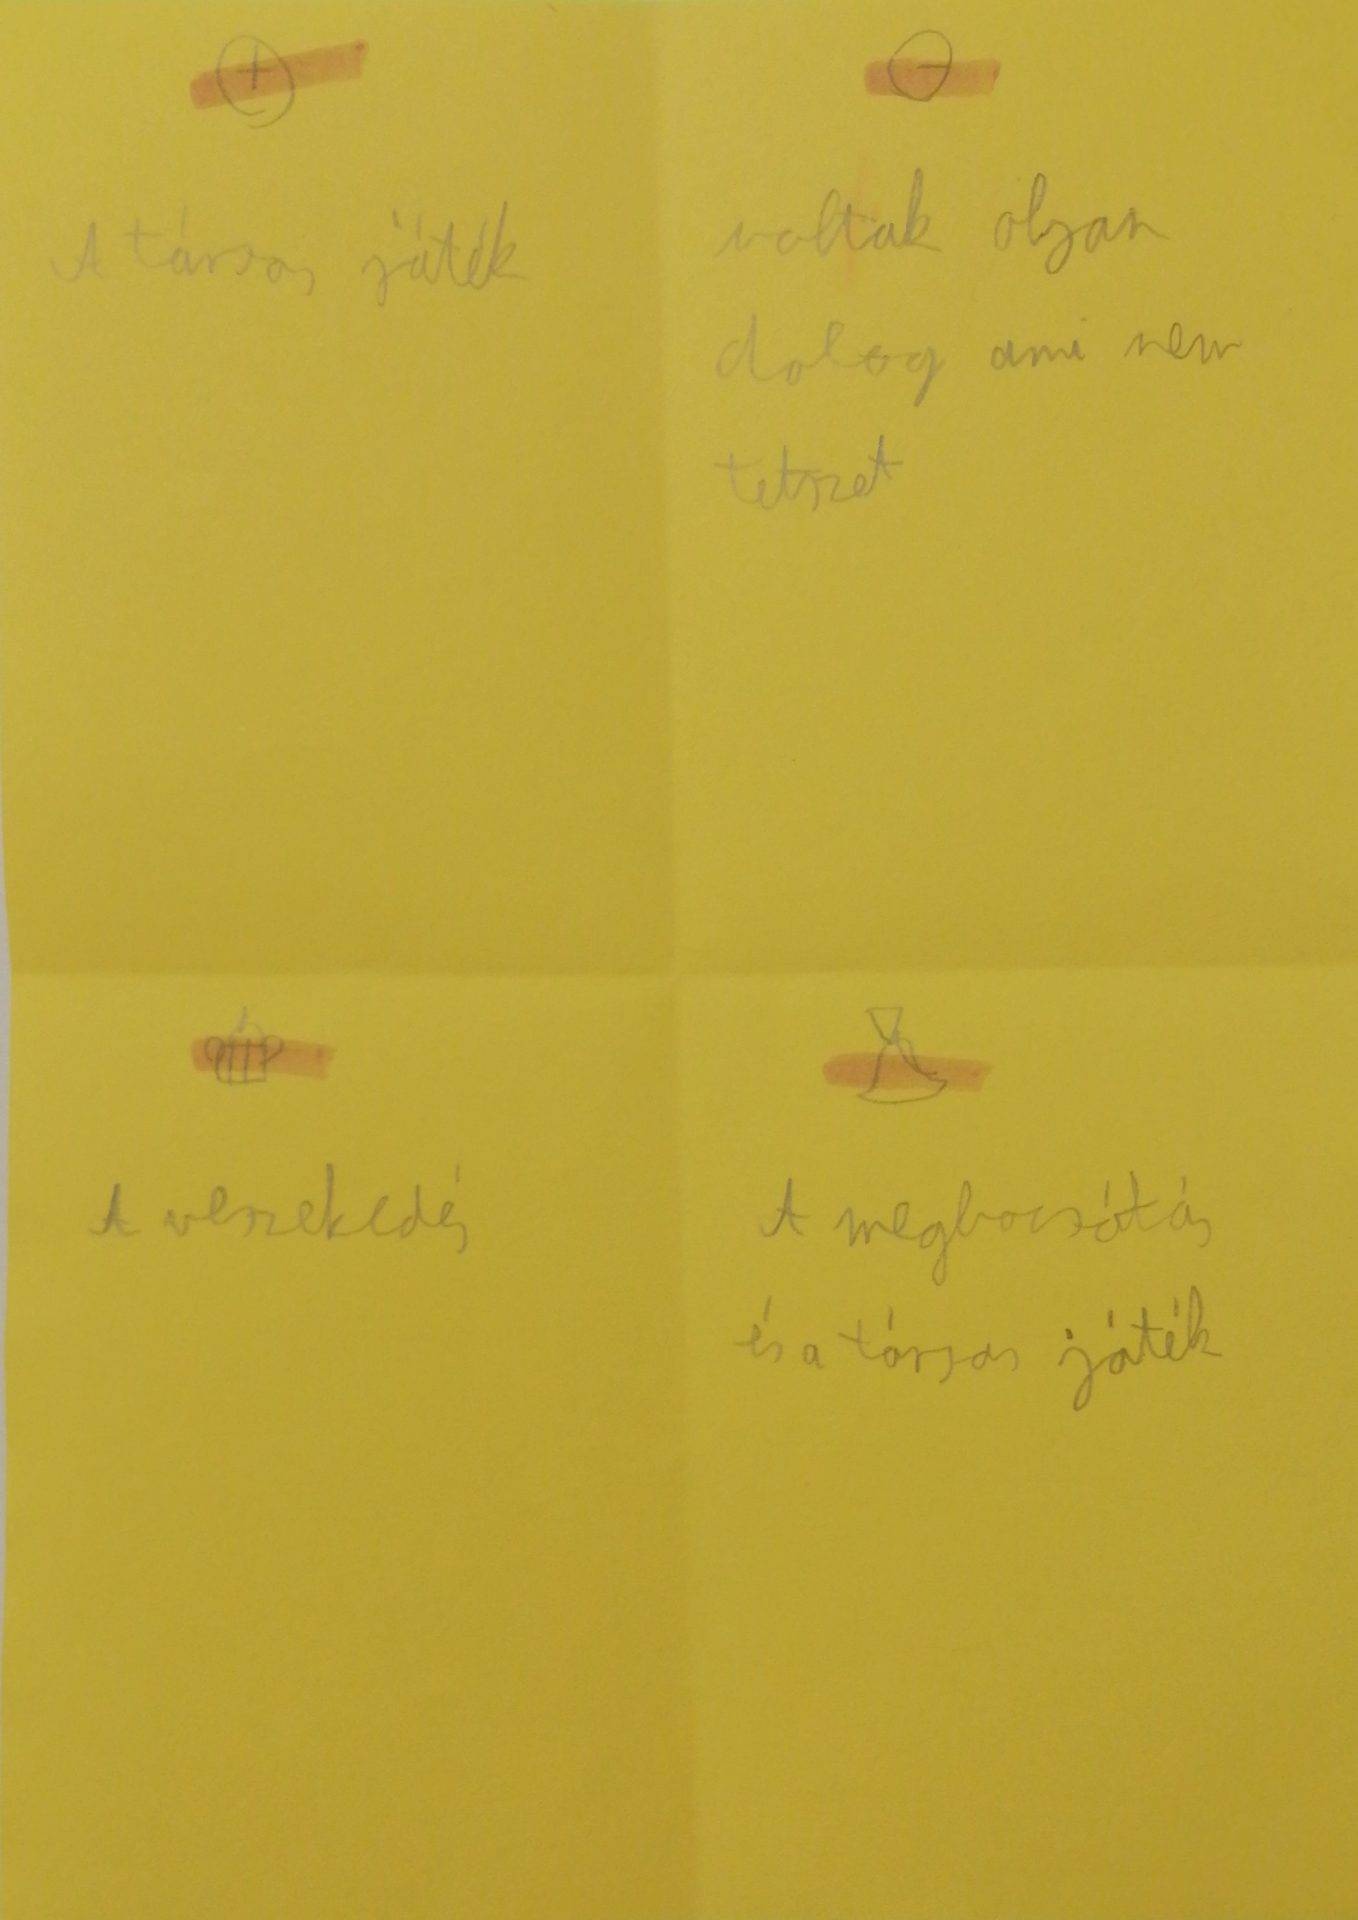 +
-
A társas játék
voltak olyan
dolog ami nem
tetszet
A veszekedés
A megbocsótás
és a társas játék